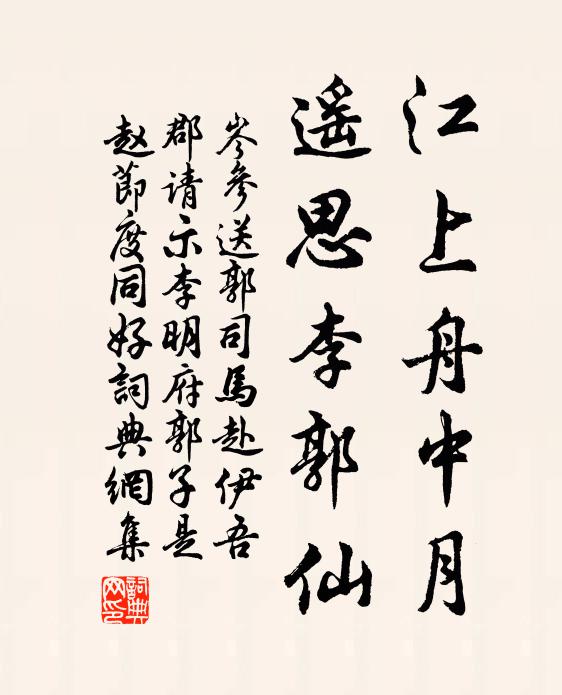 江上舟中月
遥思李郭仙
岑参送郭司馬赴伊吾
郡请示李明府郭子是
赵節度同好詞典網集
詞典
网印